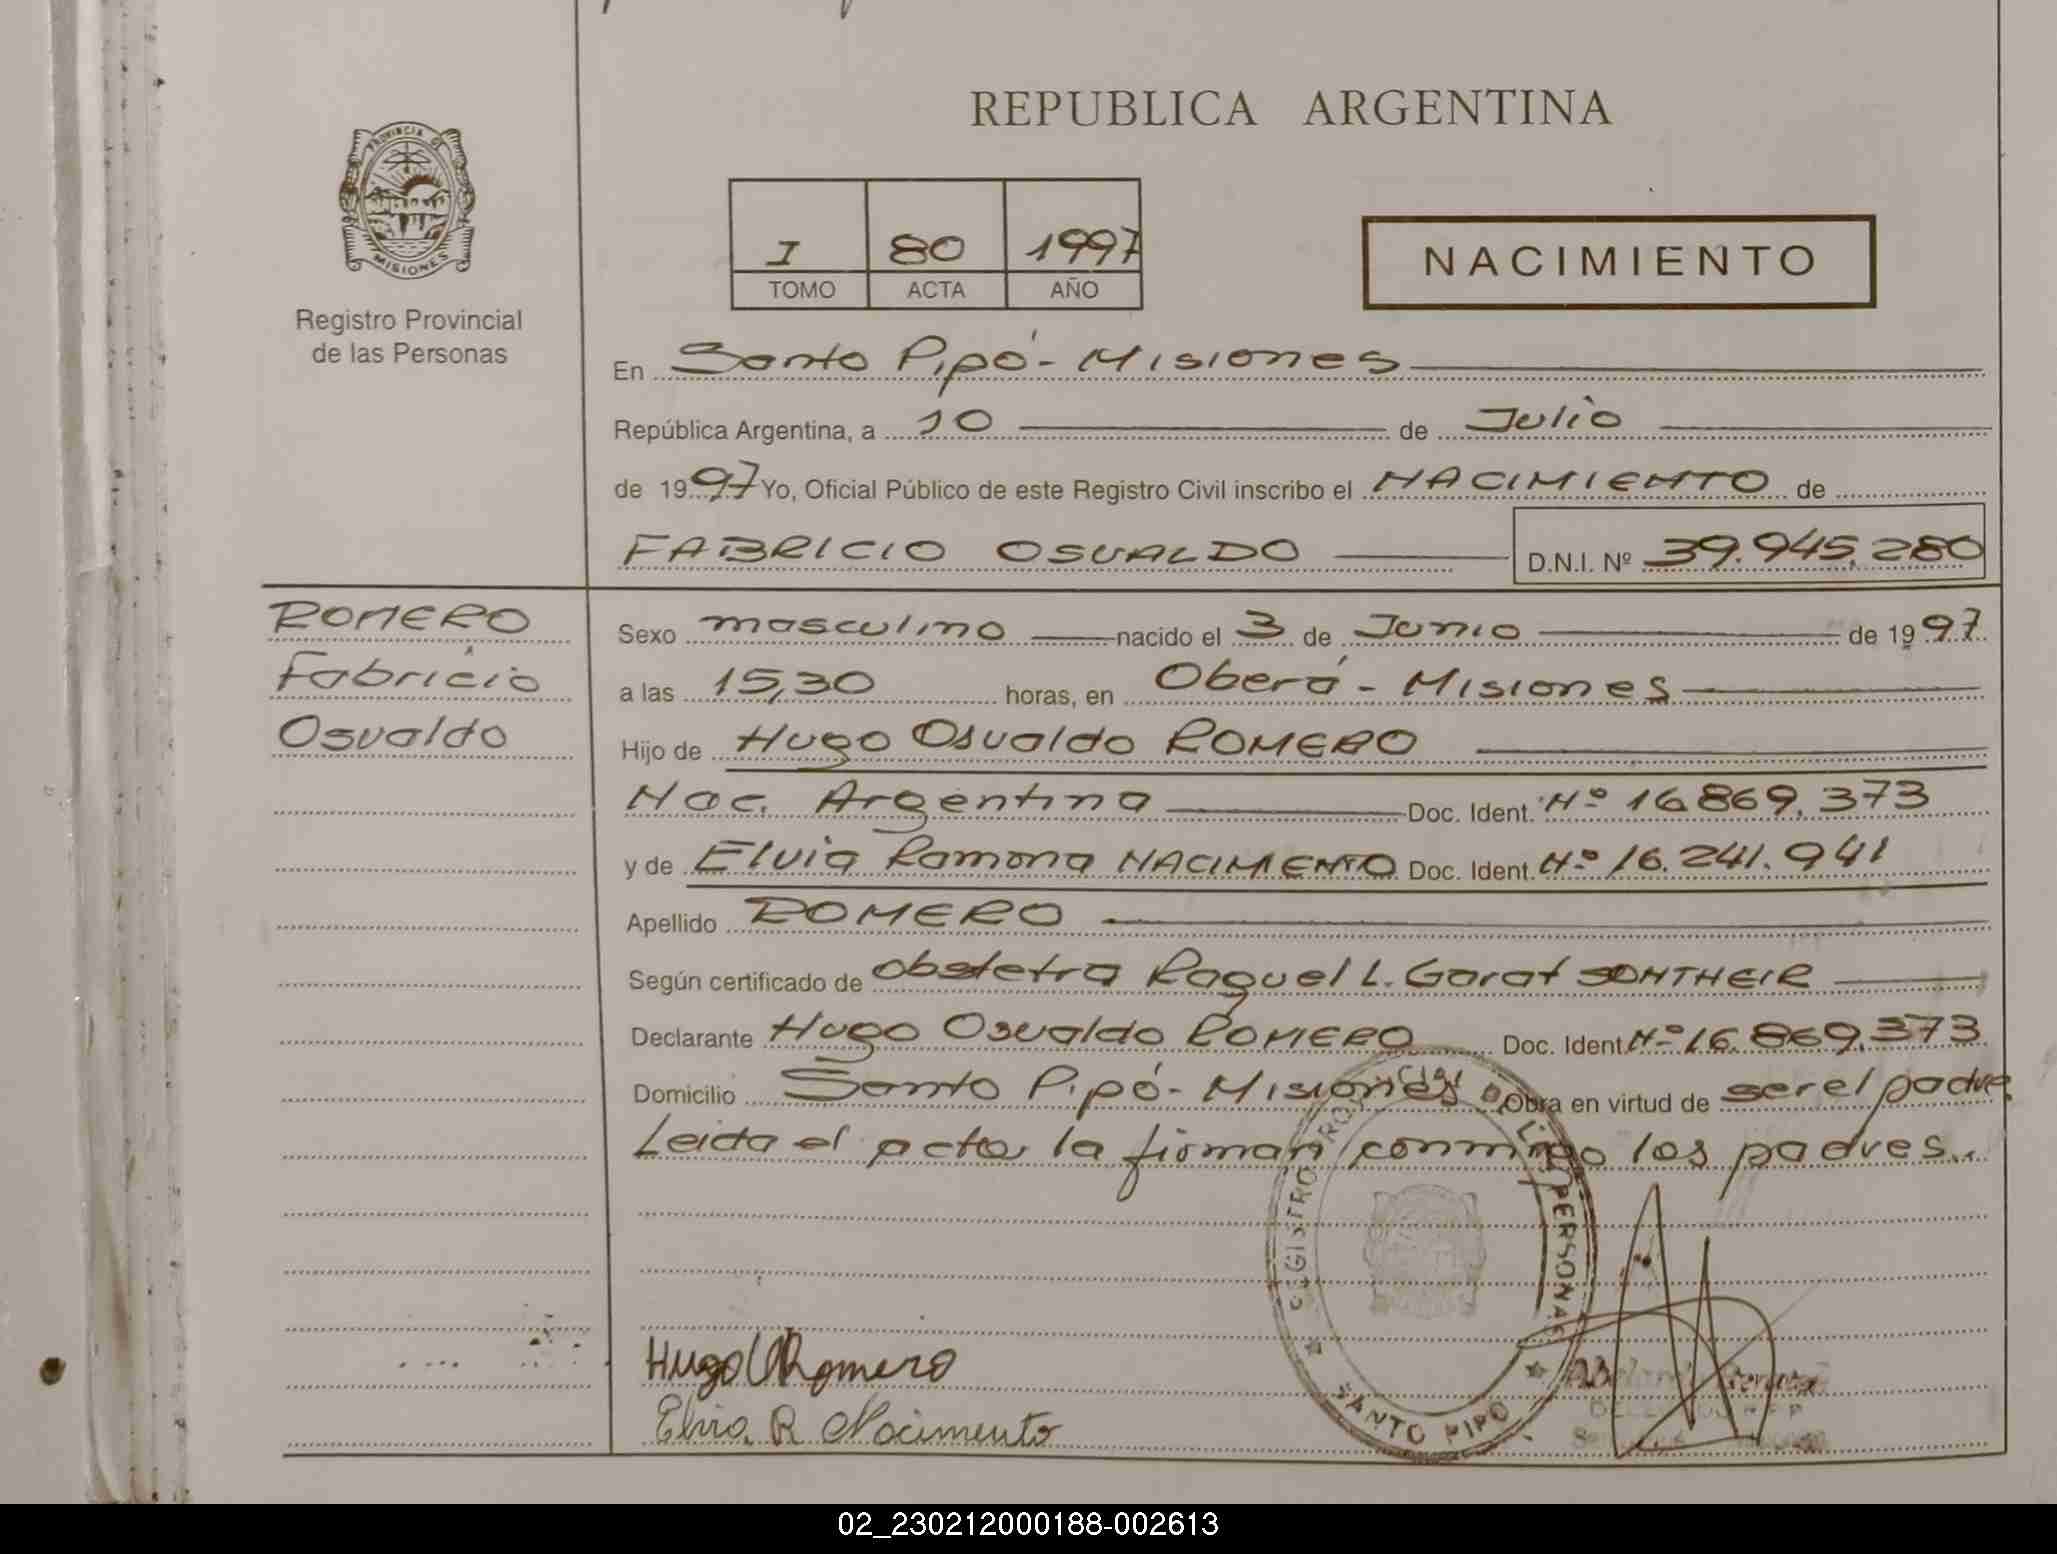 REPUBLICA ARGENTINA
PROVINCIA DE
MISIONES
Registro Provincial
de las Personas
I 80 1997
TOMO ACTA AÑO
NACIMIENTO
En Santo Pipó - Misiones
República Argentina, a 10 de Julio
de 1997 Yo, Oficial Público de este Registro Civil inscribo el NACIMIENTO de
FABRICIO OSVALDO D.N.I. Nº 39.945.280
ROMERO
Fabricio
Osvaldo
Sexo masculino nacido el 3 de Junio de 1997
a las 15,30 horas, en Oberá - Misiones
Hijo de Hugo Osvaldo ROMERO
Nac. Argentina Doc. Ident. Nº 16.869.373
y de Elvia Ramona NACIMENTO Doc. Ident. Nº 16.241.941
Apellido ROMERO
Según certificado de obstetra Raquel L. Garat SONTHEIR
Declarante Hugo Osvaldo ROMERO Doc. Ident Nº 16.869.373
Domicilio Santo Pipó - Misiones Obra en virtud de ser el padre
Leida el acta la firman conmigo los padres.
REGISTRO PERSONAS
SANTO PIPO
Hugo O Romero
Elvia R Nacimento
02_230212000188-002613